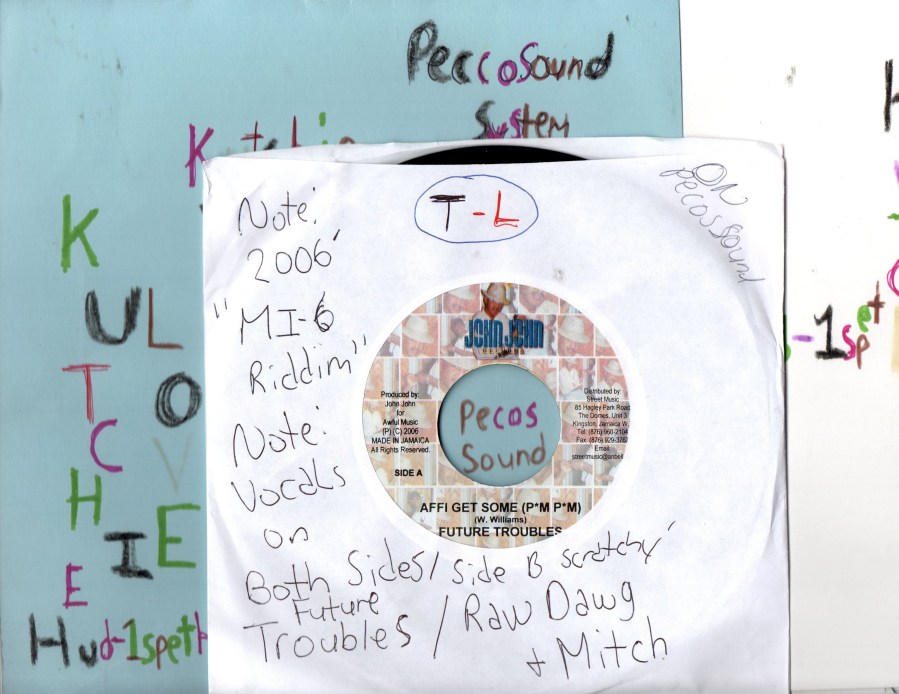 PeccoSound
System
K
KULOVE
TCHIE
Hud-1speth
T-L
ON
Pecossound
Note:
2006'
"MI-6
Riddim"
Note:
Vocals
on
Both Sides/Side B scratchy'
Future
Troubles / Raw Dawg
+ Mitch
JOHN JOHN
RECORDS
Produced by:
John John
for
Awful Music
(P) (C) 2006
MADE IN JAMAICA
All Rights Reserved.
SIDE A
Distributed by:
Street Music
85 Hagley Park Road
The Domes, Unit 3
Kingston, Jamaica W.
Tel: (876) 960-2104
Fax: (876) 929-3762
Email
streetmusic@anbell
Pecos
Sound
AFFI GET SOME (P*M P*M)
(W. Williams)
FUTURE TROUBLES
-1spet